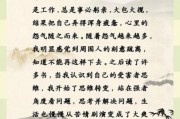 是工作，总是事必躬亲，大包大揽，
结果把自己弄得浑身疲惫，心里的
怨气随之而来。随着怨气越来越多，
我明显感觉到周围人的刻意疏离，
知道不能再这样下去。之后读了许
多书，当我认识到自己的受害者思
维，我开始了思维转变，站在强者
角度看问题，思考并解决问题，生
活也慢慢从苦情剧演变成了大爽